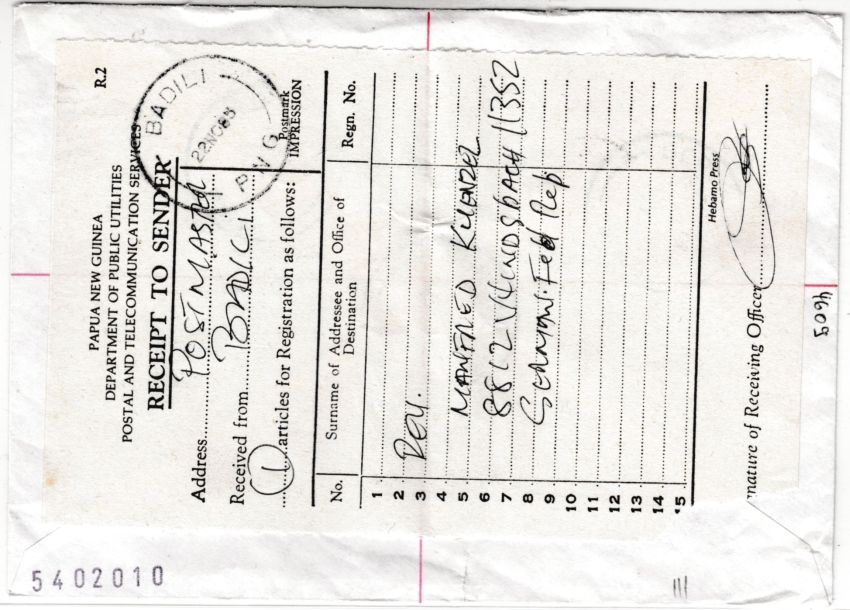 R.2
PAPUA NEW GUINEA
DEPARTMENT OF PUBLIC UTILITIES
POSTAL AND TELECOMMUNICATION SERVICES
RECEIPT TO SENDER
BADILI
22NO83
P N G
Postmark
IMPRESSION
Address POSTMASTER
Received from BADILI
1 articles for Registration as follows:
No. Surname of Addressee and Office of Destination Regn. No.
1
2
3
4
5 MANFRED KUENZEL
6
7 11352
8
9
10
11
12
13
14
15
Hebamo Press
nature of Receiving Officer
4605
5402010